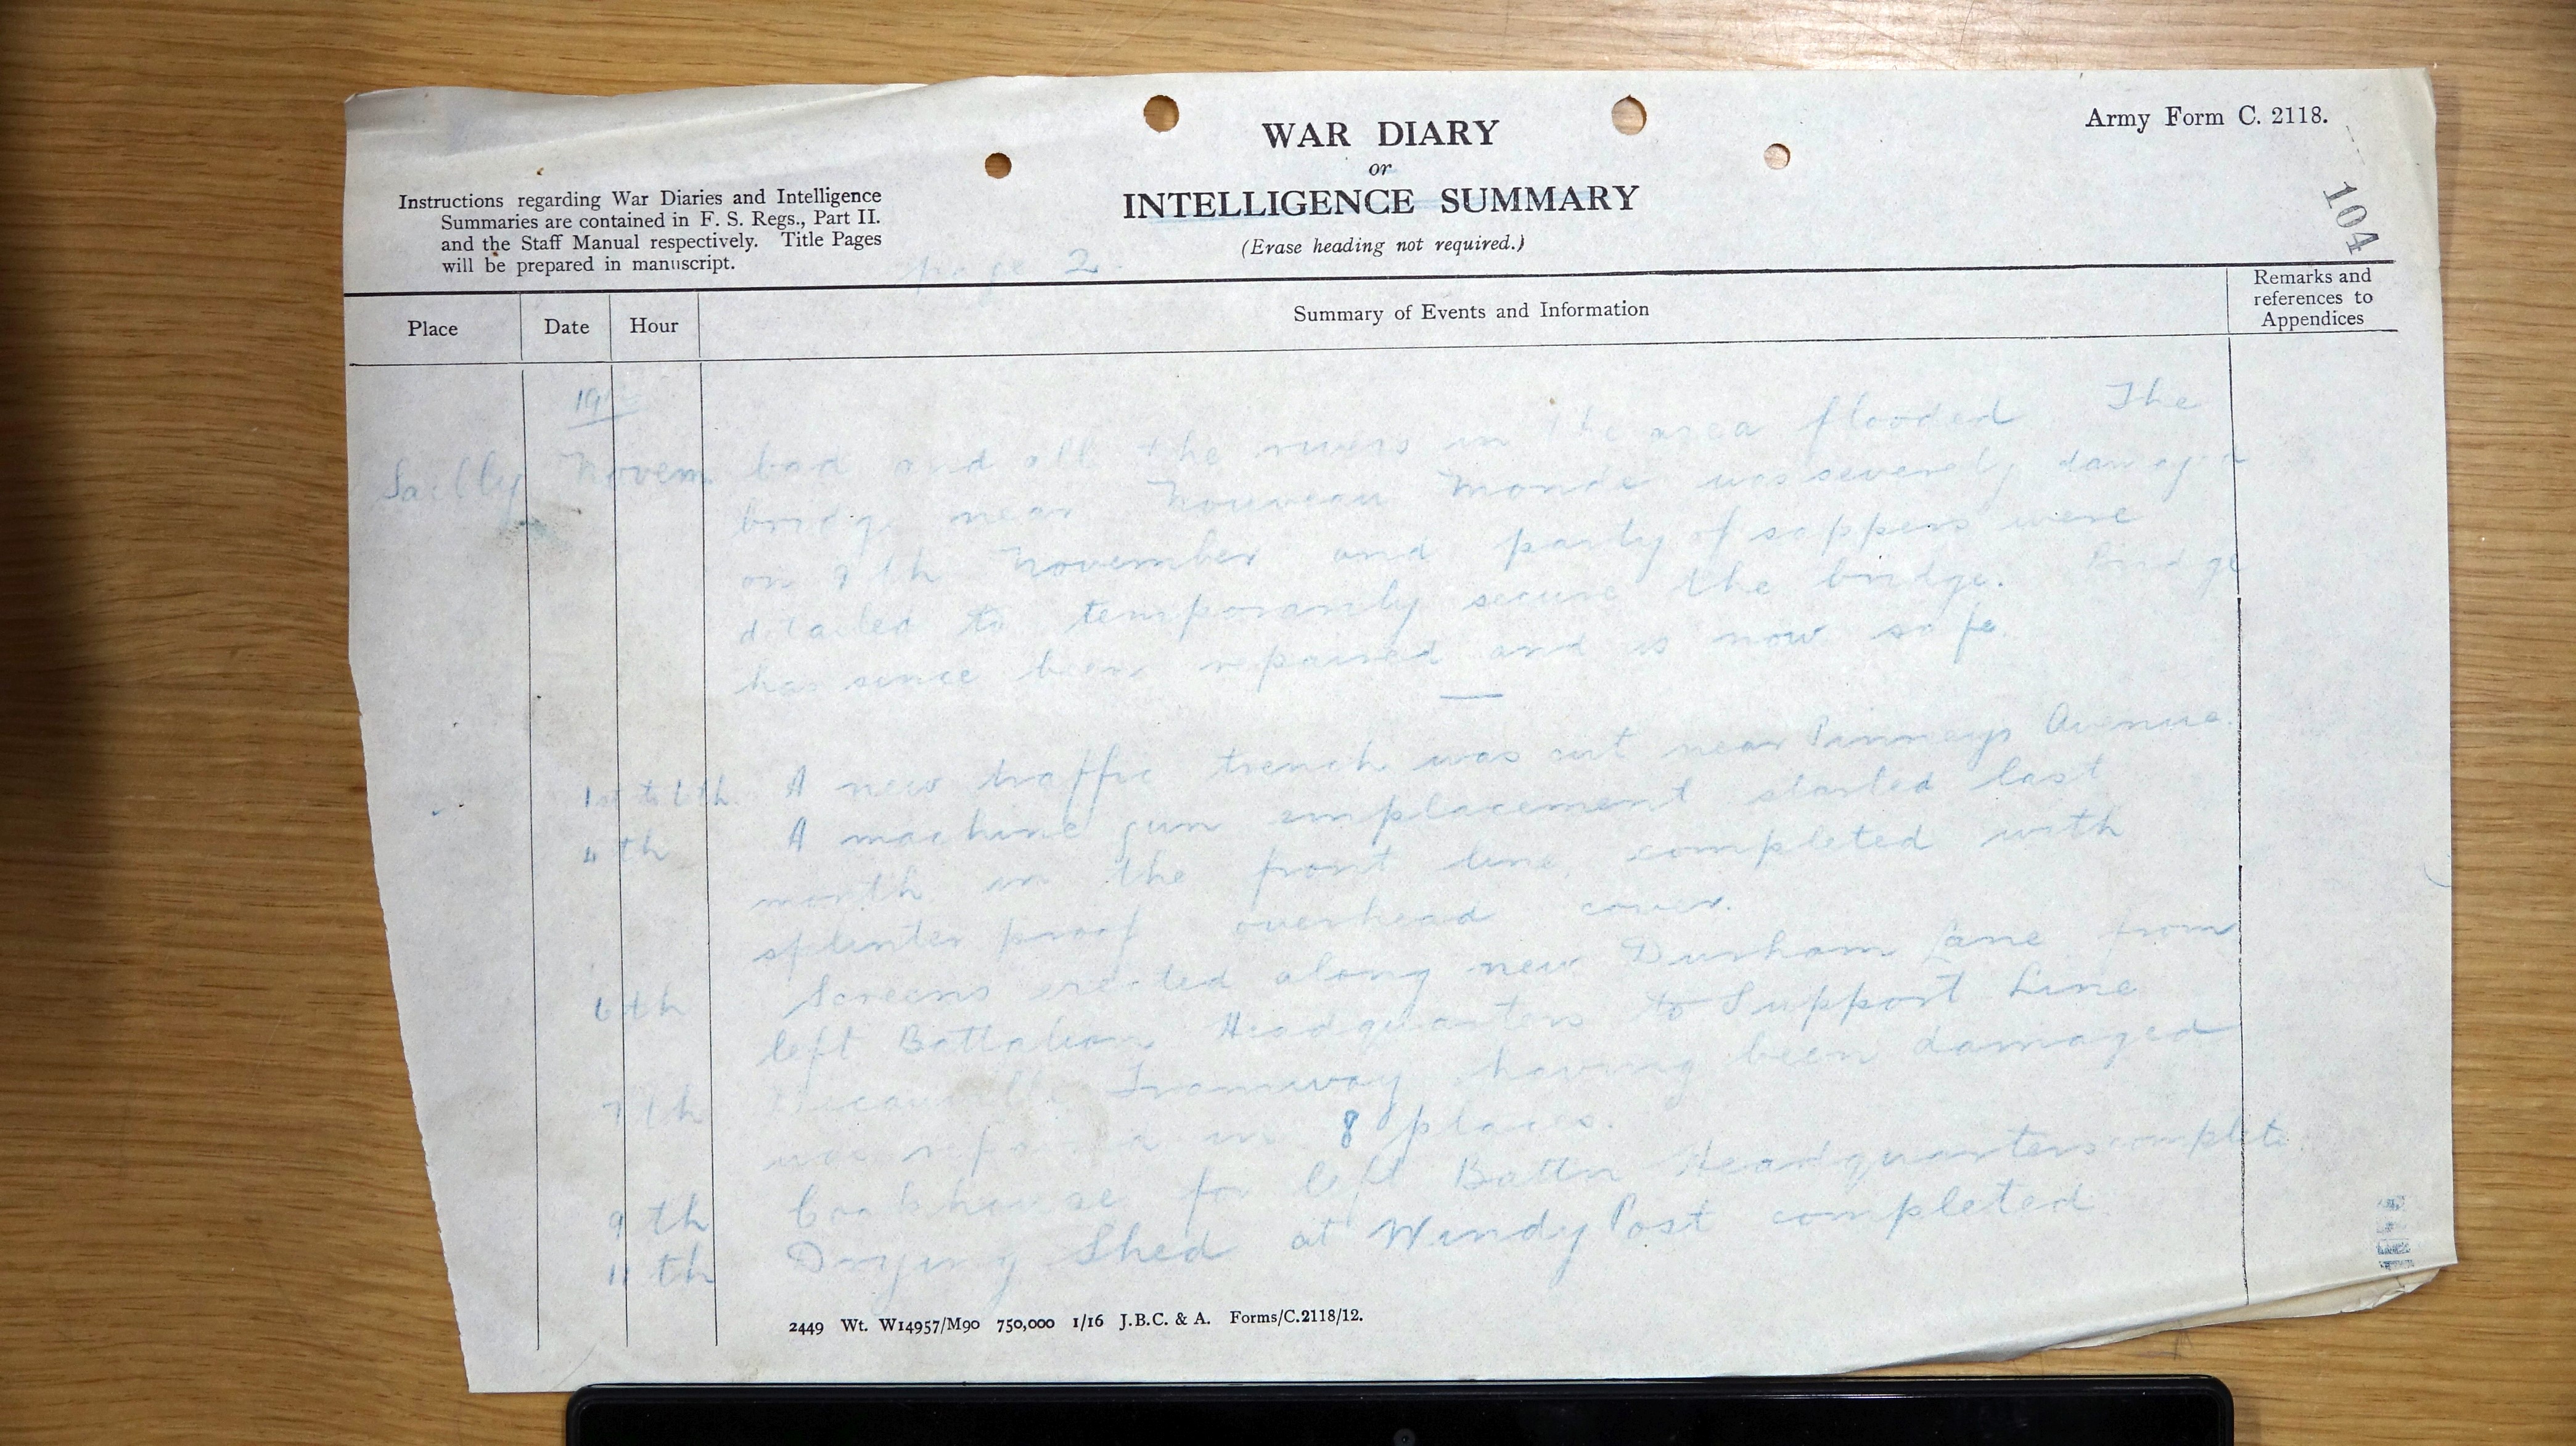 Army Form C. 2118.
WAR DIARY
or
INTELLIGENCE SUMMARY
(Erase heading not required.)
Instructions regarding War Diaries and Intelligence
Summaries are contained in F. S. Regs., Part II.
and the Staff Manual respectively. Title Pages
will be prepared in manuscript.
104
page 2.
Place Date Hour Summary of Events and Information Remarks and
references to
Appendices
19
Sailly Novem bad and all the rivers in the area flooded The
bridge near Nouveau Monde was severely damaged
on 9th November and party of sappers were
detailed to temporarily secure the bridge. Bridge
has since been repaired and is now safe.
1st to 6th A new traffic trench was cut near Pinneys Avenue.
4th A machine gun emplacement started last
month in the front line completed with
splinter proof overhead cover.
6th Screens erected along new Durham Lane from
left Battalion Headquarters to Support Line
7th Decauville Tramway having been damaged
was repaired in 8 places.
9th Cookhouse for left Battn Headquarters complete
11th Drying Shed at Windy Post completed
2449 Wt. W14957/M90 750,000 1/16 J.B.C. & A. Forms/C.2118/12.